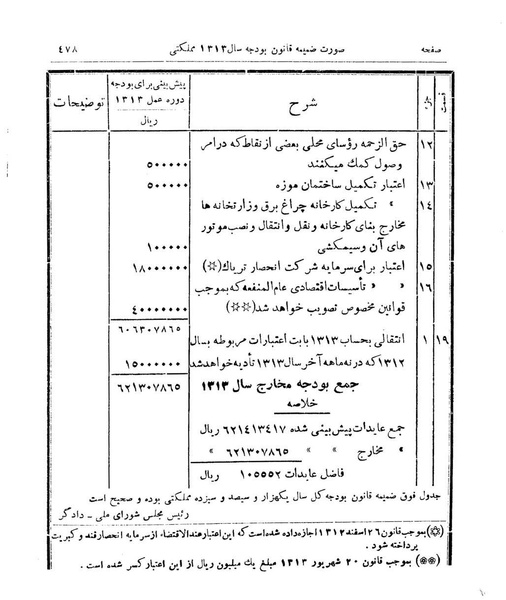 صفحه
صورت ضمیمه قانون بودجه سال ۱۳۱۳ مملکتی
۴۷۸
قسمت
جزء
شرح
پیش بینی برای بودجه
دوره عمل ۱۳۱۳
ریال
توضیحات
۱۲ حق الزحمه رؤسای محلی بعضی از نقاط که در امر
وصول کمك میکنند ۵۰۰۰۰۰
۱۳ اعتبار تکمیل ساختمان موزه ۵۰۰۰۰۰
۱۴ » تکمیل کارخانه چراغ برق وزارتخانه ها
مخارج بنای کارخانه و نقل و انتقال و نصب موتور
های آن و سیمکشی ۱۰۰۰۰۰
۱۵ اعتبار برای سرمایه شرکت انحصار تریاك(☆) ۱۸۰۰۰۰۰۰
۱۶ » » تأسیسات اقتصادی عام المنفعه که بموجب
قوانین مخصوص تصویب خواهد شد(☆☆) ۴۰۰۰۰۰۰۰
۶۰۶۳۰۷۸۶۵
۱۹ ۱ انتقالی بحساب ۱۳۱۳ بابت اعتبارات مربوطه بسال
۱۳۱۲ که در نه ماهه آخر سال ۱۳۱۳ تأدیه خواهد شد ۱۵۰۰۰۰۰۰
جمع بودجه مخارج سال ۱۳۱۳ ۶۲۱۳۰۷۸۶۵
خلاصه
جمع عایدات پیش بینی شده ۶۲۱۴۱۳۴۱۷ ریال
» مخارج » » ۶۲۱۳۰۷۸۶۵ »
فاضل عایدات ۱۰۵۵۵۲ ریال
جدول فوق ضمیمه قانون بودجه کل سال یکهزار و سیصد و سیزده مملکتی بوده و صحیح است
رئیس مجلس شورای ملی - دادگر
(☆) بموجب قانون ۲۶ اسفند ۱۳۱۲ اجازه داده شده است که این اعتبار عندالاقتضاء از سرمایه انحصار قند و کبریت
پرداخته شود .
(☆☆) بموجب قانون ۲۰ شهریور ۱۳۱۳ مبلغ یك میلیون ریال از این اعتبار کسر شده است .